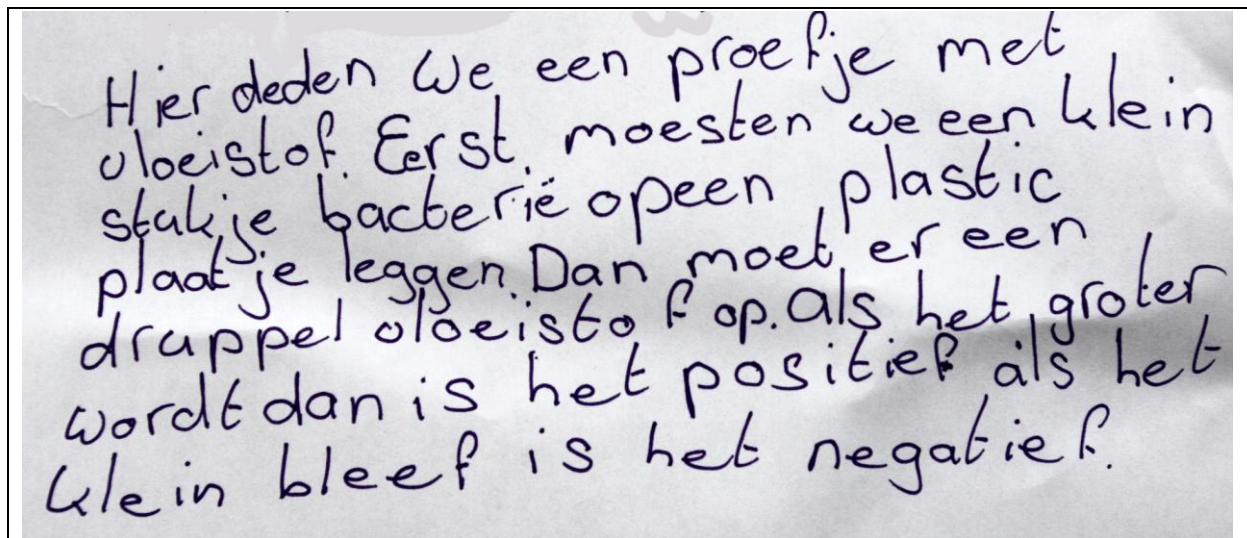 Hier deden we een proefje met
vloeistof. Eerst moesten we een klein
stukje bacterië op een plastic
plaatje leggen. Dan moet er een
druppel vloeistof op. als het groter
wordt dan is het positief als het
klein bleef is het negatief.